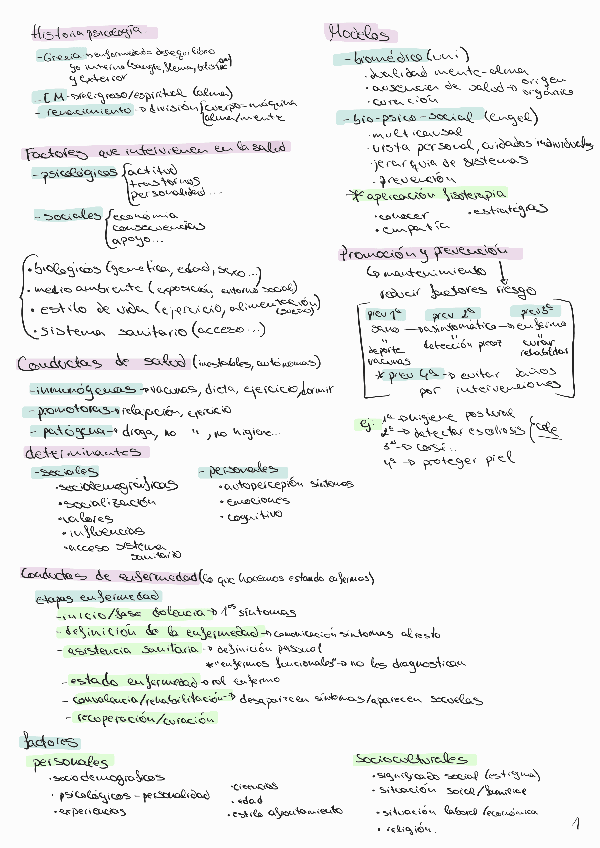 Historia psicología
- Grecia → enfermedad = desequilibro
go interno (sangre, flema, bilis
y exterior
- EM → religioso/espiritual (alma)
- renacimiento → división cuerpo-máquina
alma/mente
Factores que intervienen en la salud
- psicológicos actitud
trastornos
personalidad...
- sociales economía
consecuencias
apoyo...
• biológicos (genética, edad, sexo...)
• medio ambiente (exposición, entorno social)
• estilo de vida (ejercicio, alimentación)
(sueño)
• sistema sanitario (acceso...)
Conductas de salud (inestables, autónomas)
- inmunógenas → vacunas, dieta, ejercicio, dormir
- promotoras → relajación, ejercicio
- patógena → droga, no ", no higiene...
determinantes
- sociales
• sociodemográficas
• socialización
• valores
• influencias
• acceso sistema
sanitario
- personales
• autopercepción síntomas
• emociones
• cognitivo
Conductas de enfermedad (lo que hacemos estando enfermos)
etapas enfermedad
- inicio/fase dolencia → 1os síntomas
- definición de la enfermedad → comunicación síntomas al resto
- asistencia sanitaria → definición personal
* "enfermos funcionales" → no les diagnostican
- estado enfermedad → rol enfermo
- convalencia/rehabilitación → desaparecen síntomas/aparecen secuelas
- recuperación/curación
factores
personales
• sociodemográficos
• psicológicos - personalidad
• experiencias
• creencias
• edad
• estilo afrontamiento
socioculturales
• significado social (estigma)
• situación social/familiar
• situación laboral/económica
• religión.
Modelos
- biomédico (uni)
• dualidad mente-alma
• ausencia de salud → origen
orgánico
• curación
- bio-psico-social (engel)
• multicausal
• vista personal, cuidados individuales
• jerarquía de sistemas
• prevención
* aplicación fisioterapia
• conocer
• estrategias
• empatía
Promoción y prevención
↳ mantenimiento
reducir factores riesgo
prev 1ª prev 2ª prev 3ª
sano → asintomático → enfermo
" " "
deporte detección precoz curar
vacunas rehabilitar
* prev 4ª → evitar daños
por intervenciones
ej: 1ª → higiene postural
2ª → detectar escoliosis cole
3ª → corsé...
4ª → proteger piel
1